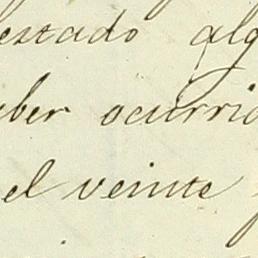 estado alg
ber ocurrid
el veinte